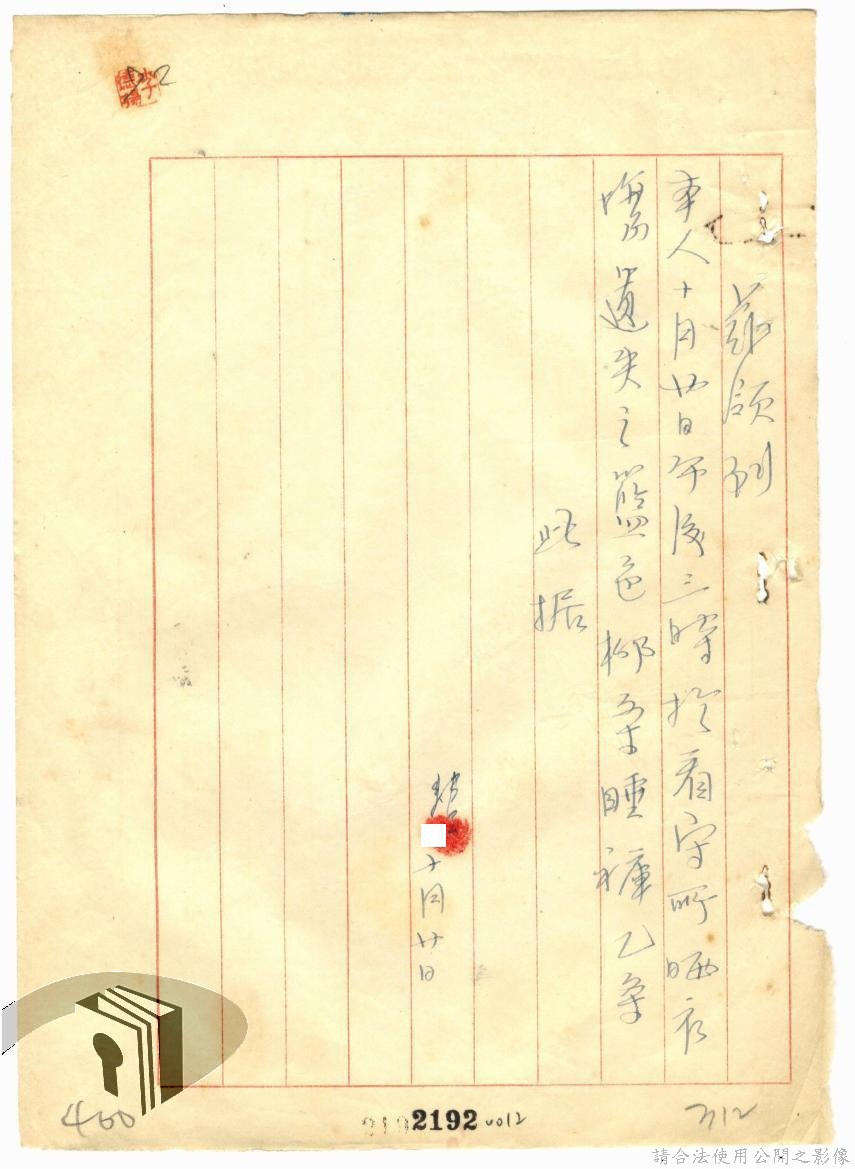 茲領到
本人十月廿日午后三時於看守所晒衣
場遺失之籃色柳条睡褲乙条
此据
十月廿日
400
2192
0012
712
請合法使用公開之影像